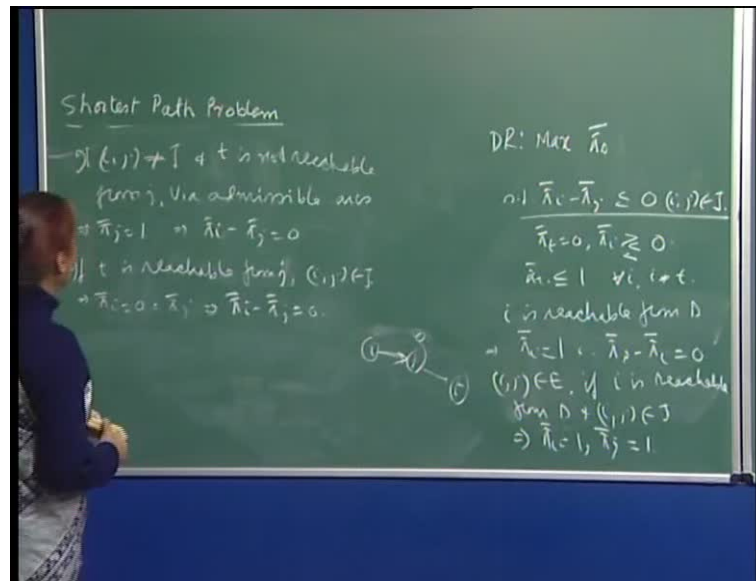 Shortest Path Problem
(i,j) ∈ J & t is not reachable
from j, via admissible arcs
⇒ π̄j = 1 ⇒ π̄i - π̄j = 0
If t is reachable from j, (i,j) ∈ J
⇒ π̄i = 0 = π̄j ⇒ π̄i - π̄j = 0.
DR: Max π̄s
s.t π̄i - π̄j ≤ 0 (i,j) ∈ J.
π̄t = 0, π̄i ≷ 0.
π̄i ≤ 1 ∀i, i ≠ t.
i is reachable from s
⇒ π̄i = 1 ∴ π̄s - π̄i = 0
(i,j) ∈ E, if i is reachable
from s & (i,j) ∈ J
⇒ π̄i = 1, π̄j = 1
i j t